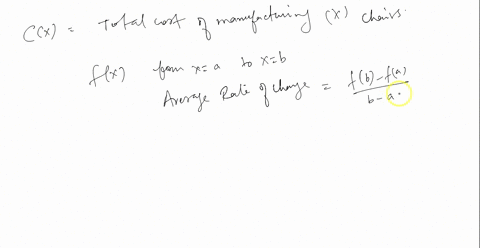 C(x) = Total cost of manufacturing (x) chairs.
f(x) from x=a to x=b
Average Rate of change = f(b)-f(a) / b-a.